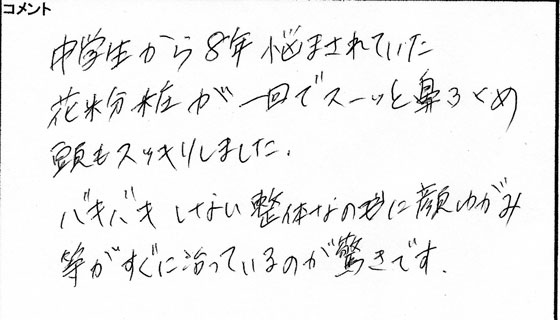 コメント
中学生から8年悩まされていた
花粉症が一回でスーッと鼻ろくめ
頭もスッキリしました.
バキバキしない整体なのに顔ゆがみ
等がすぐに治っているのが驚きです.